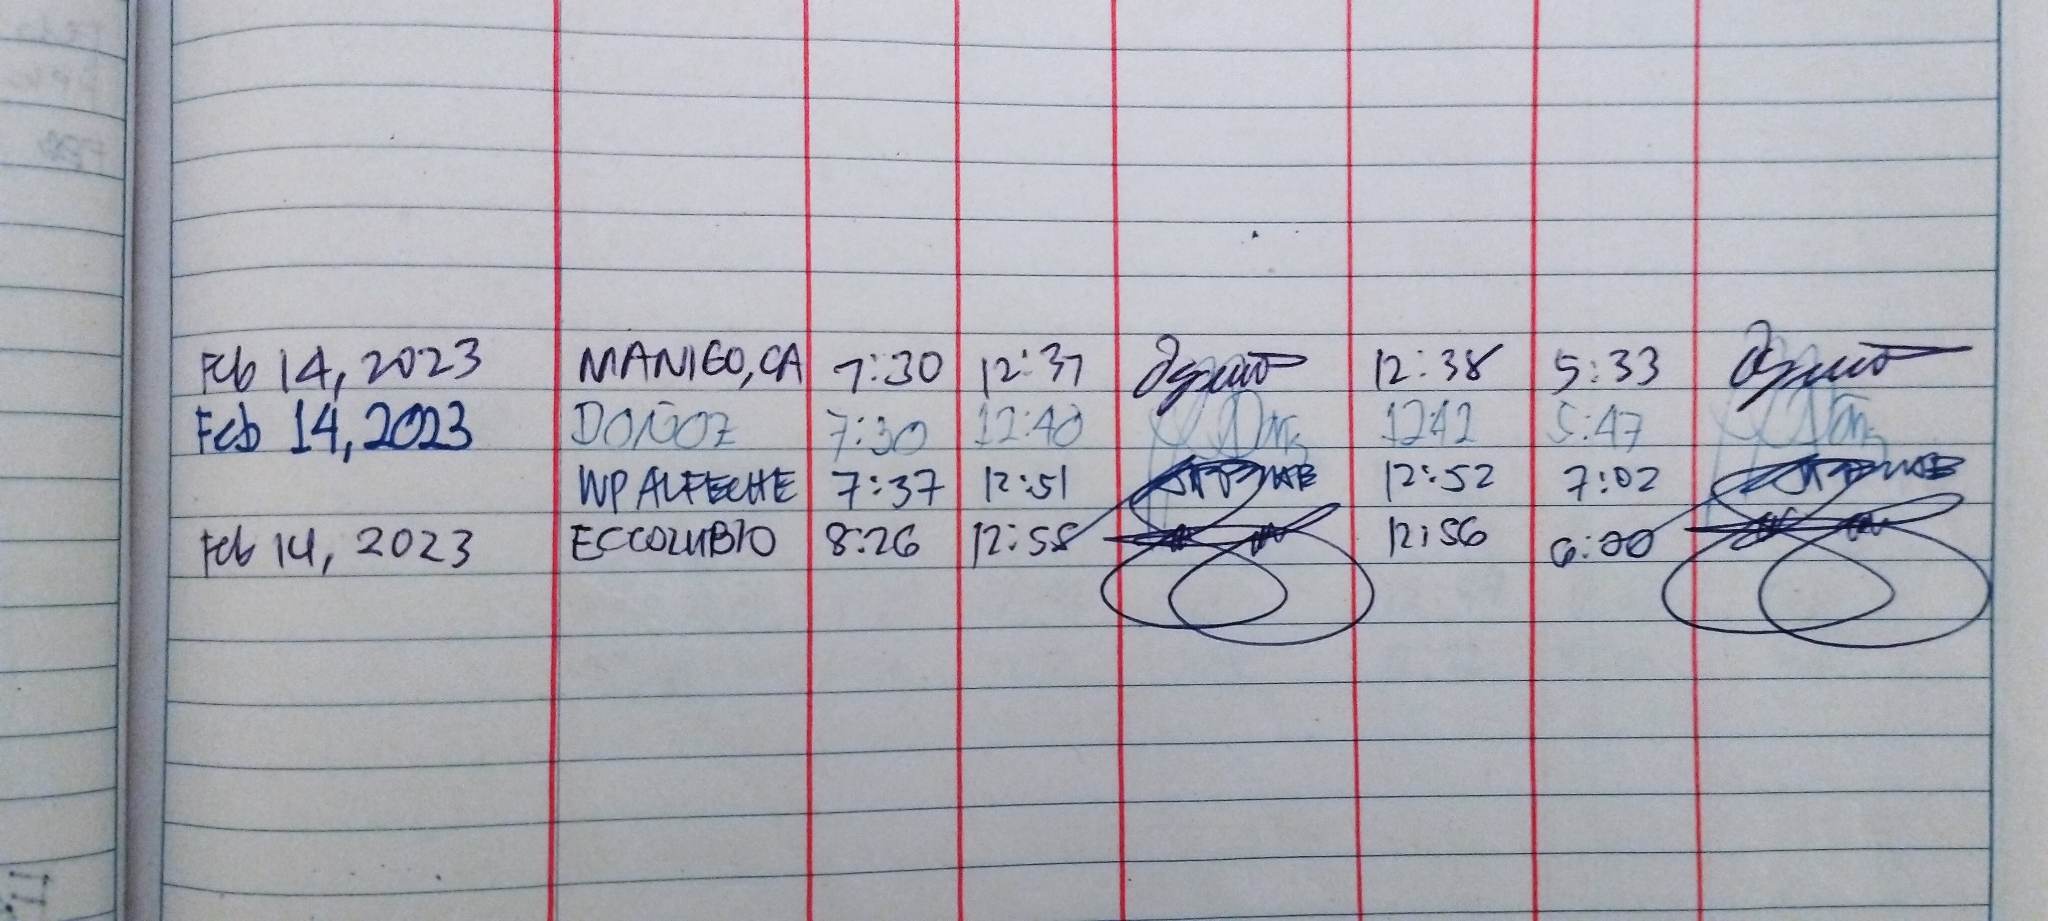 Feb 14, 2023 MANIGO, CA 7:30 12:37 12:38 5:33
Feb 14, 2023 DOÑOZ 7:30 12:40 12:42 5:47
WP ALFECHE 7:37 12:51 12:52 7:02
Feb 14, 2023 ECCOLUBIO 8:26 12:55 12:56 6:00